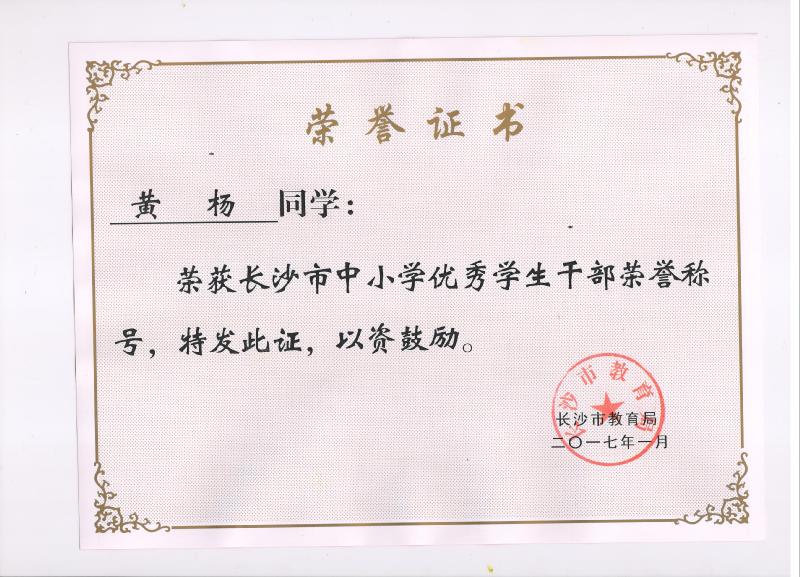 荣誉证书
黄 杨 同学：
荣获长沙市中小学优秀学生干部荣誉称
号，特发此证，以资鼓励。
长沙市教育局
长沙市教育局
二〇一七年一月